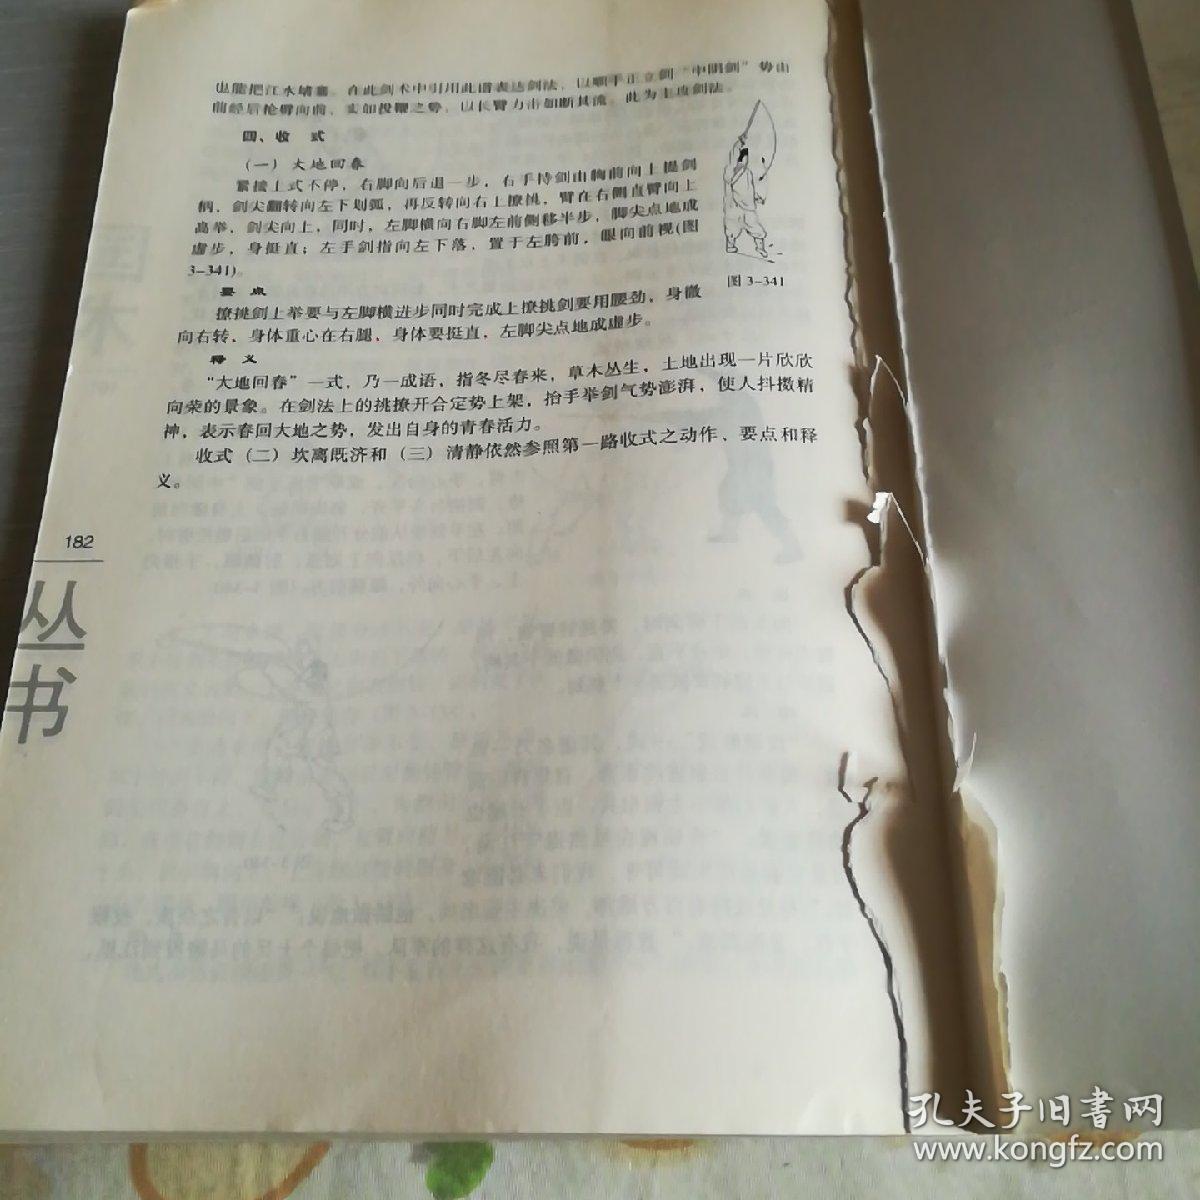 也能把江水堵塞。在此剑术中引用此谱表达剑法，以顺手正立剑“中阴剑”势由
前经后抡臂向前，实如投鞭之势，以长臂力击如断其流。此为主攻剑法。
四、收　式
（一）大地回春
紧接上式不停，右脚向后退一步，右手持剑由胸前向上提剑
柄，剑尖翻转向左下划弧，再反转向右上撩挑，臂在右侧直臂向上
高举，剑尖向上，同时，左脚横向右脚左前侧移半步，脚尖点地成
虚步，身挺直；左手剑指向左下落，置于左胯前，眼向前视(图
3-341)。
图 3-341
要　点
撩挑剑上举要与左脚横进步同时完成上撩挑剑要用腰劲，身微
向右转，身体重心在右腿，身体要挺直，左脚尖点地成虚步。
释　义
“大地回春”一式，乃一成语，指冬尽春来，草木丛生，土地出现一片欣欣
向荣的景象。在剑法上的挑撩开合定势上架，抬手举剑气势澎湃，使人抖擞精
神，表示春回大地之势，发出自身的青春活力。
收式（二）坎离既济和（三）清静依然参照第一路收式之动作、要点和释
义。
182
丛
书
孔夫子旧书网
www.kongfz.com